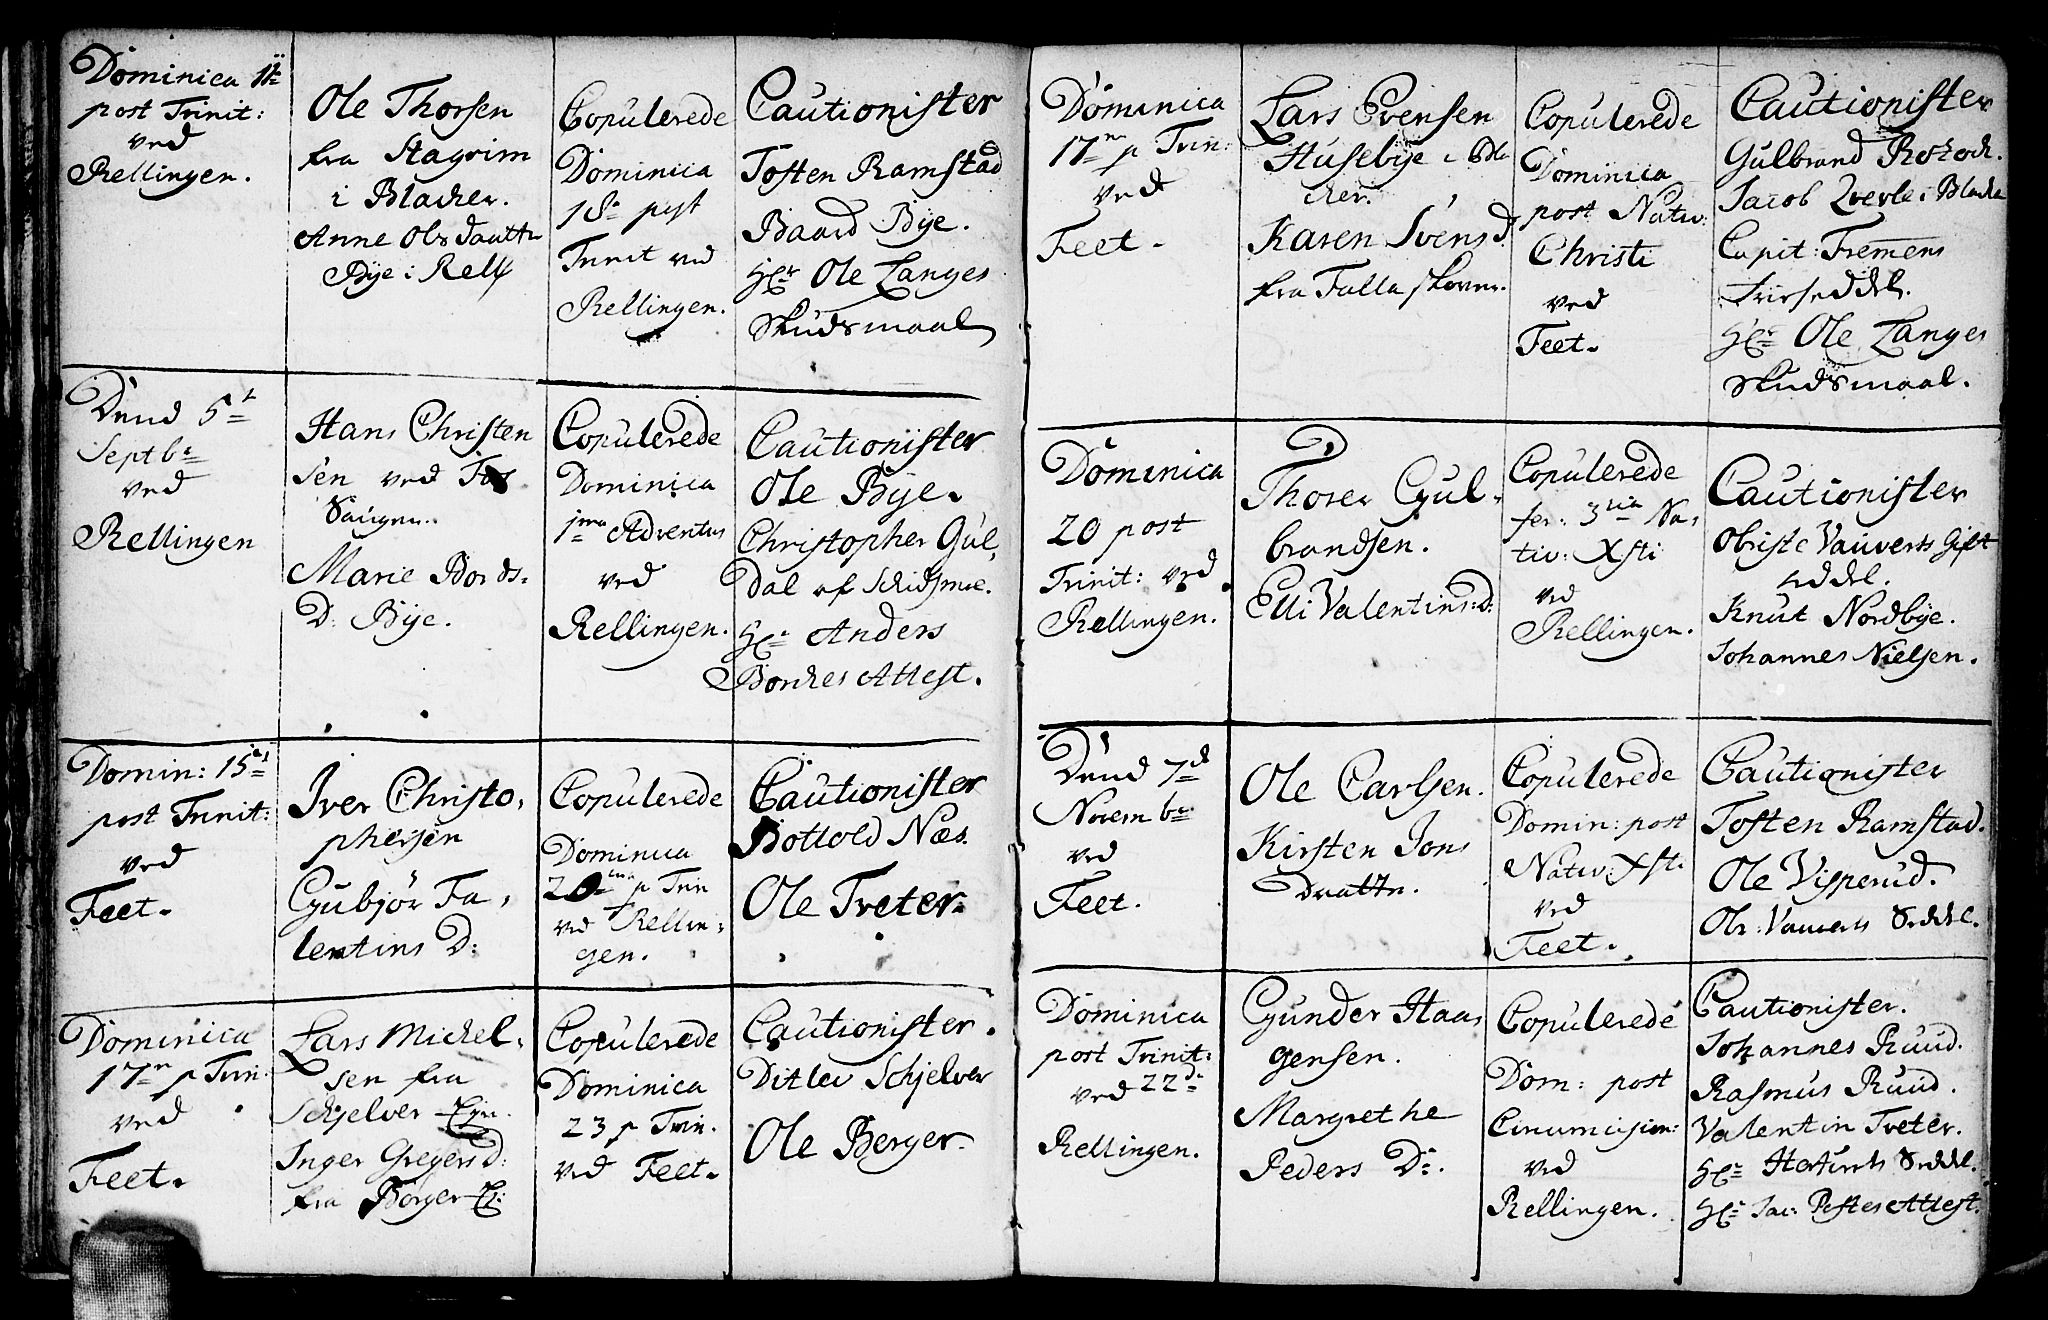 Dominica 11te
post Trinit:
ved
Rellingen.
Ole Thorsen
fra Stagrim
i Blacher.
Anne Olsdautr
Bye i Rell
Copulerede
Dominica
18 post
Trinit ved
Rellingen.
Cautionister
Tosten Ramstad
Baard Bye.
Hr Ole Langes
Skudsmaal
Dend 5t
Septbr
ved
Rellingen
Hans Christen
sen ved
Marie Bords-
D: Bye.
Copulerede
Dominica
1ma Adventus
ved
Rellingen.
Cautionister
Ole Bye.
Christopher Gul,
Dal af Schidsmoe.
Hr Anders
Borches Attest.
Domin: 15
post Trinit:
ved
Feet.
Iver Christo,
phersen
Gubjør Fa,
lentins D:
Copulerede
Dominica
20 p Trin
ved Rellin,
gen.
Cautionister
Bottold Næs.
Ole Treter.
Dominica
17 p Trin.
ved
Feet.
Lars Michel,
sen fra
Schjelver Eyn.
Inger Gregers d:
fra Børger E:
Copulerede
Dominica
23 p Trin.
ved Feet.
Cautionister.
Ditlev Schjelver
Ole Berger.
Dominica
17 p Trin:
ved
Feet.
Lars Evensen
Husebye i Bla
cher.
Karen Svens d.
fra Falla skoven.
Copulerede
Dominica
post Nativ:
Christi
ved
Feet.
Cautionister
Gulbrand
Jacob i Blacke
Capit: Fremens
friseddel.
Hr Ole Langes
Skudsmaal.
Dominica
20 post
Trinit: ved
Rellingen.
Thorer Gul-
brandsen.
Elli Valentins: d:
Copulerede
fer: 3tia Na,
tiv: Xsti
ved
Rellingen.
Cautionister
Obriste Vauverts Gift
seddel.
Knut Nordbye.
Johannes Nielsen.
Dend 7d
Novembr
ved
Feet.
Ole Carlsen.
Kirsten Jons
Dratr.
Copulerede
Domin: post
Nativ: Xsti
ved
Feet.
Cautionister
Tosten Ramstad.
Ole Visperud.
Obr: Vauverts Seddel.
Dominica
post Trinit:
ved 22d
Rellingen.
Gunder Haa,
gensen.
Margrethe
Peders D:.
Copulerede
Dom: post
Circumcision:
ved
Rellingen.
Cautionister.
Johannes Ruud.
Rasmus Ruud.
Valentin Treter.
Hr Seddel.
Hr Jac: Pestes Attest.